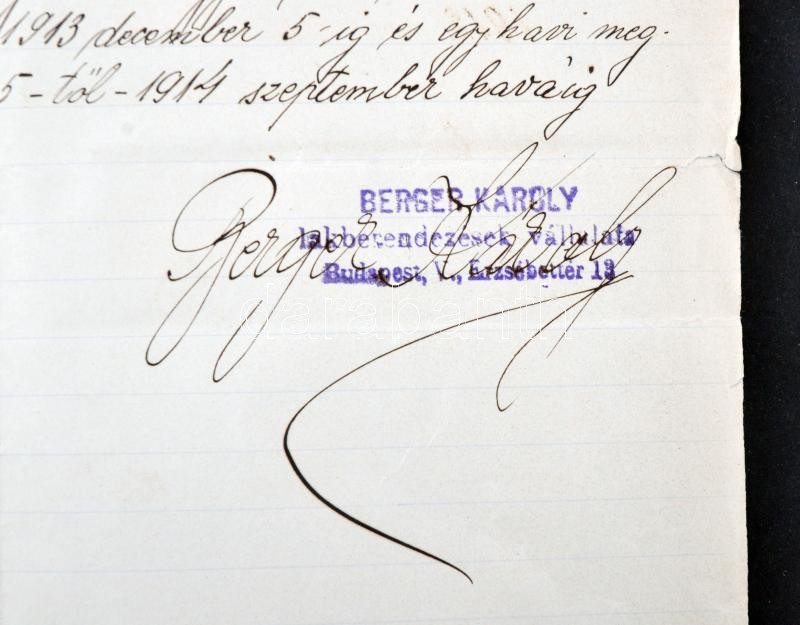 1913 december 5-ig és egy havi meg-
5-től-1914 szeptember haváig
BERGER KÁROLY
lakberendezések vállalata
Budapest, V., Erzsébettér 13
Berger Károly
darabanth